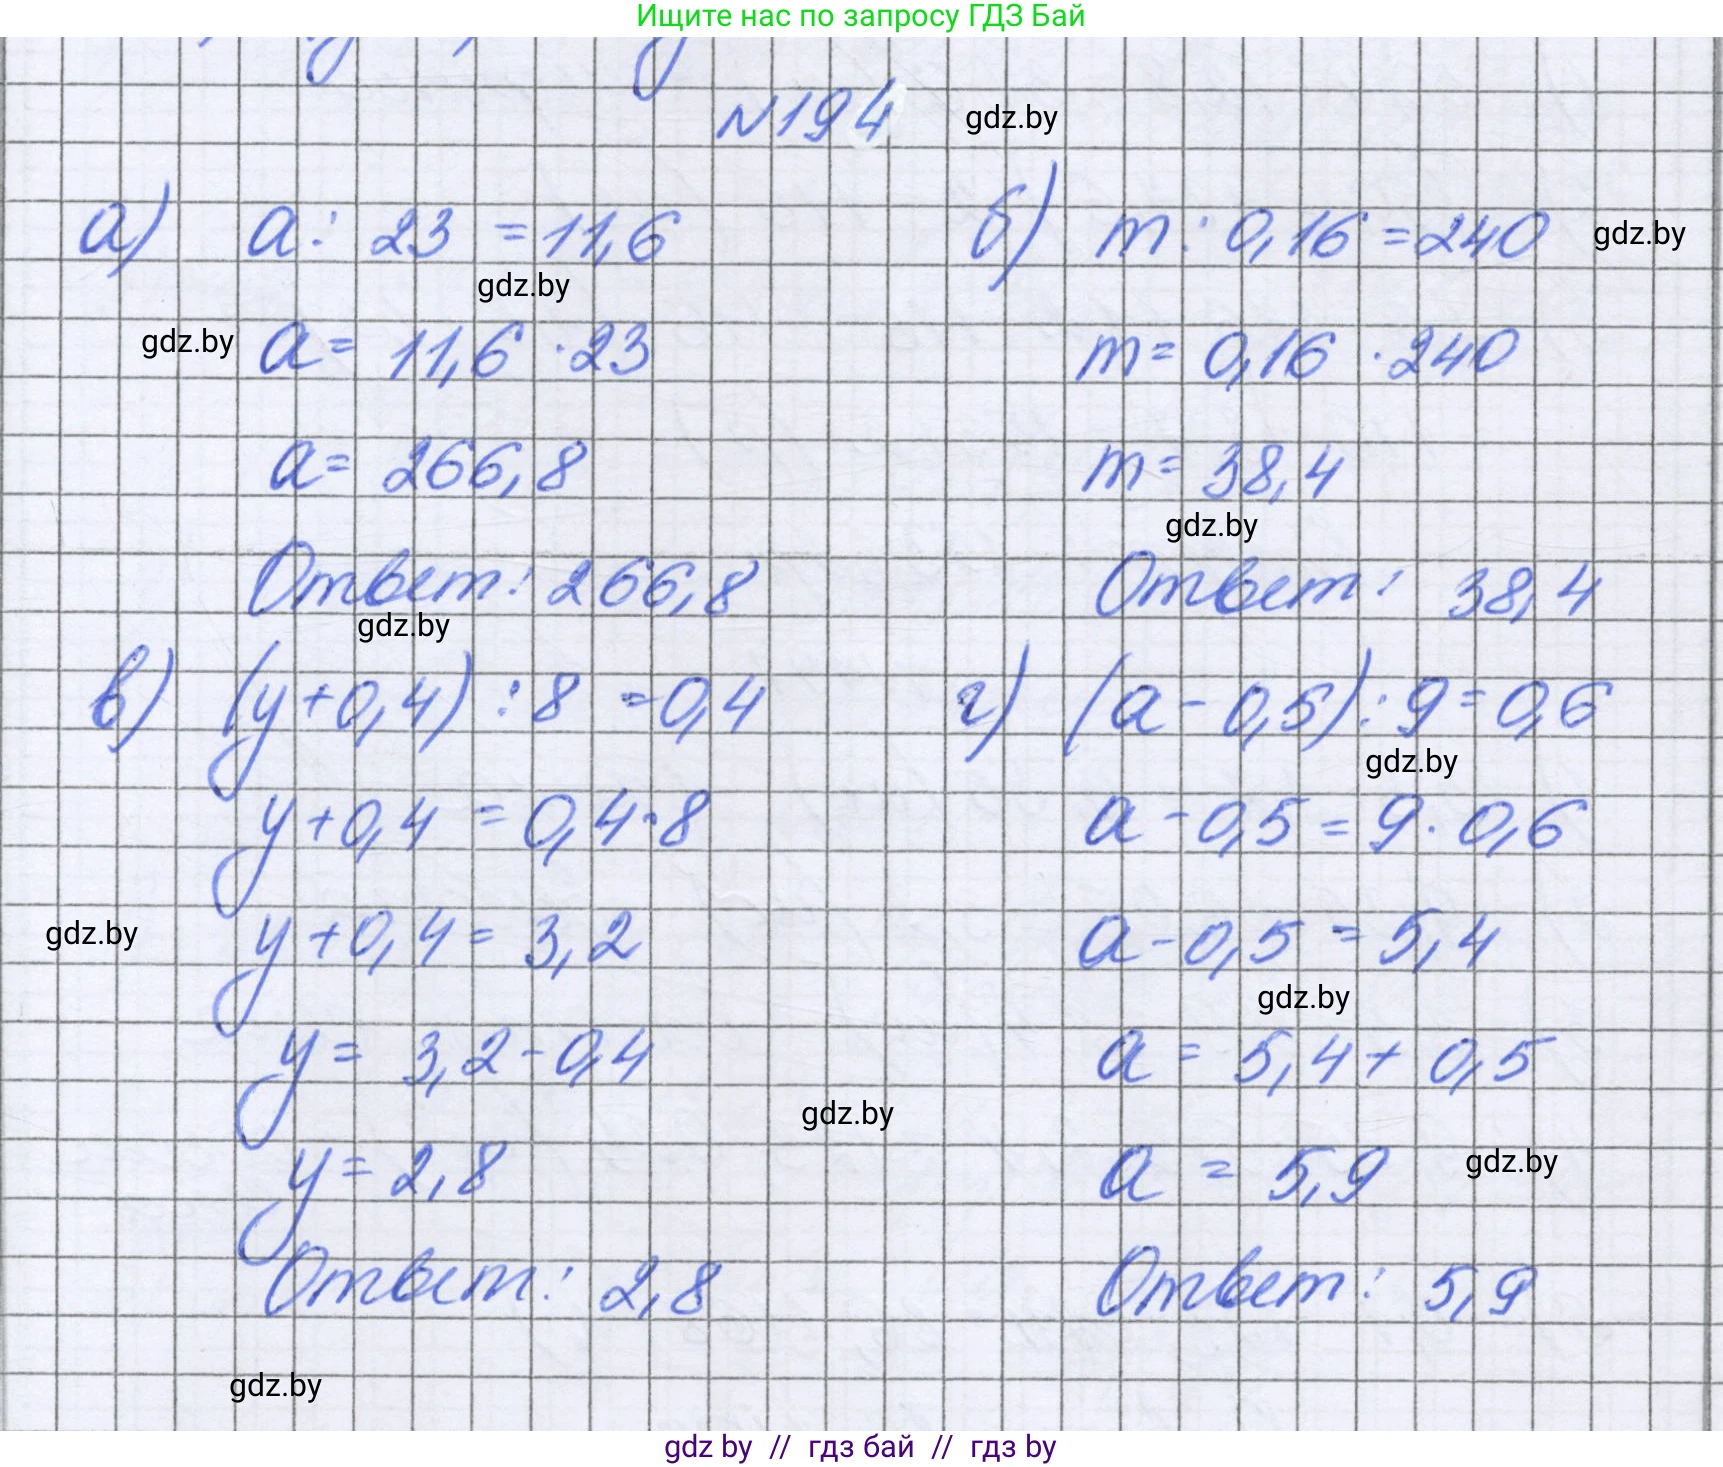 Ищите нас по запросу ГДЗ Бай
№194 gdz.by
а) a : 23 = 11,6
б) m : 0,16 = 240 gdz.by
gdz.by
gdz.by a = 11,6 · 23
m = 0,16 · 240
a = 266,8
m = 38,4
gdz.by
Ответ: 266,8
Ответ: 38,4
gdz.by
в) (y + 0,4) : 8 = 0,4
г) (a - 0,5) : 9 = 0,6
gdz.by
y + 0,4 = 0,4 · 8
a - 0,5 = 9 · 0,6
gdz.by y + 0,4 = 3,2
a - 0,5 = 5,4
gdz.by
y = 3,2 - 0,4
a = 5,4 + 0,5
gdz.by
y = 2,8
a = 5,9 gdz.by
Ответ: 2,8
Ответ: 5,9
gdz.by
gdz by // гдз бай // гдз by